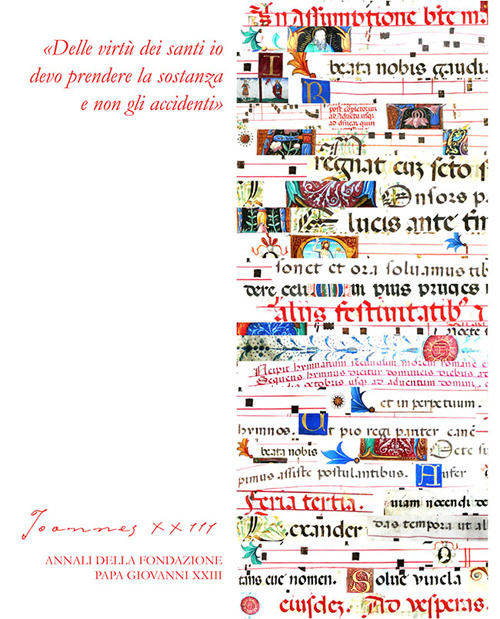 «Delle virtù dei santi io
devo prendere la sostanza
e non gli accidenti»
Joannes XXIII
ANNALI DELLA FONDAZIONE
PAPA GIOVANNI XXIII
In assumptione bte m.
beata nobis gaudi
post copletoriu
regnat cuz scto s
ensors pa
lucis ante
sonet et ora soluamus tib
dere celi in pius preces
alijs festiuitatib
nocte
Incipit hymnarium secundum morem romane
Sequens hymnus dicitur dominicis diebus ad
octobris usqz ad aduentum domini
et in perpetuum.
hymnos. Ut pio regi pariter cane
beata nobis
pimus assiste postulantibus. Aufer
feria tertia.
exander das tempora ut al
tans eue nomen. Solue vincla
eiusdez. Ad vesperas.